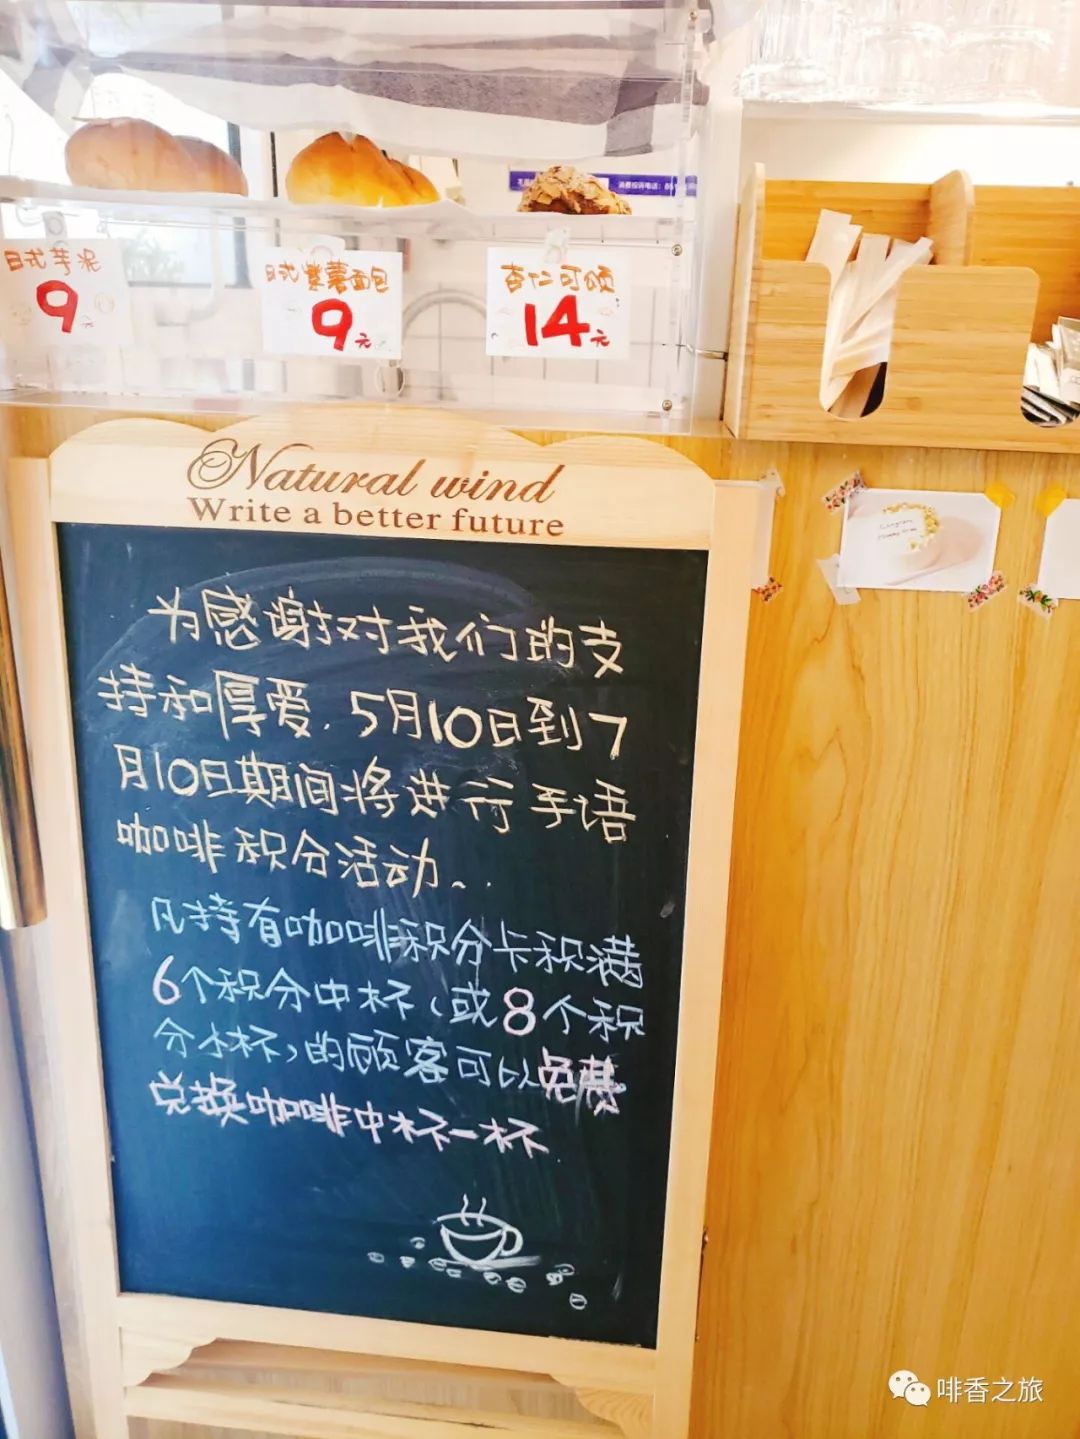 日式芋泥
9元
日式紫薯面包
9元
杏仁可颂
14元
消费投诉电话:
Natural wind
Write a better future
为感谢对我们的支
持和厚爱.5月10日到7
月10日期间将进行手语
咖啡积分活动...
凡持有咖啡积分卡积满
6个积分中杯(或8个积
分小杯,的顾客可以免费
兑换咖啡中杯一杯
啡香之旅